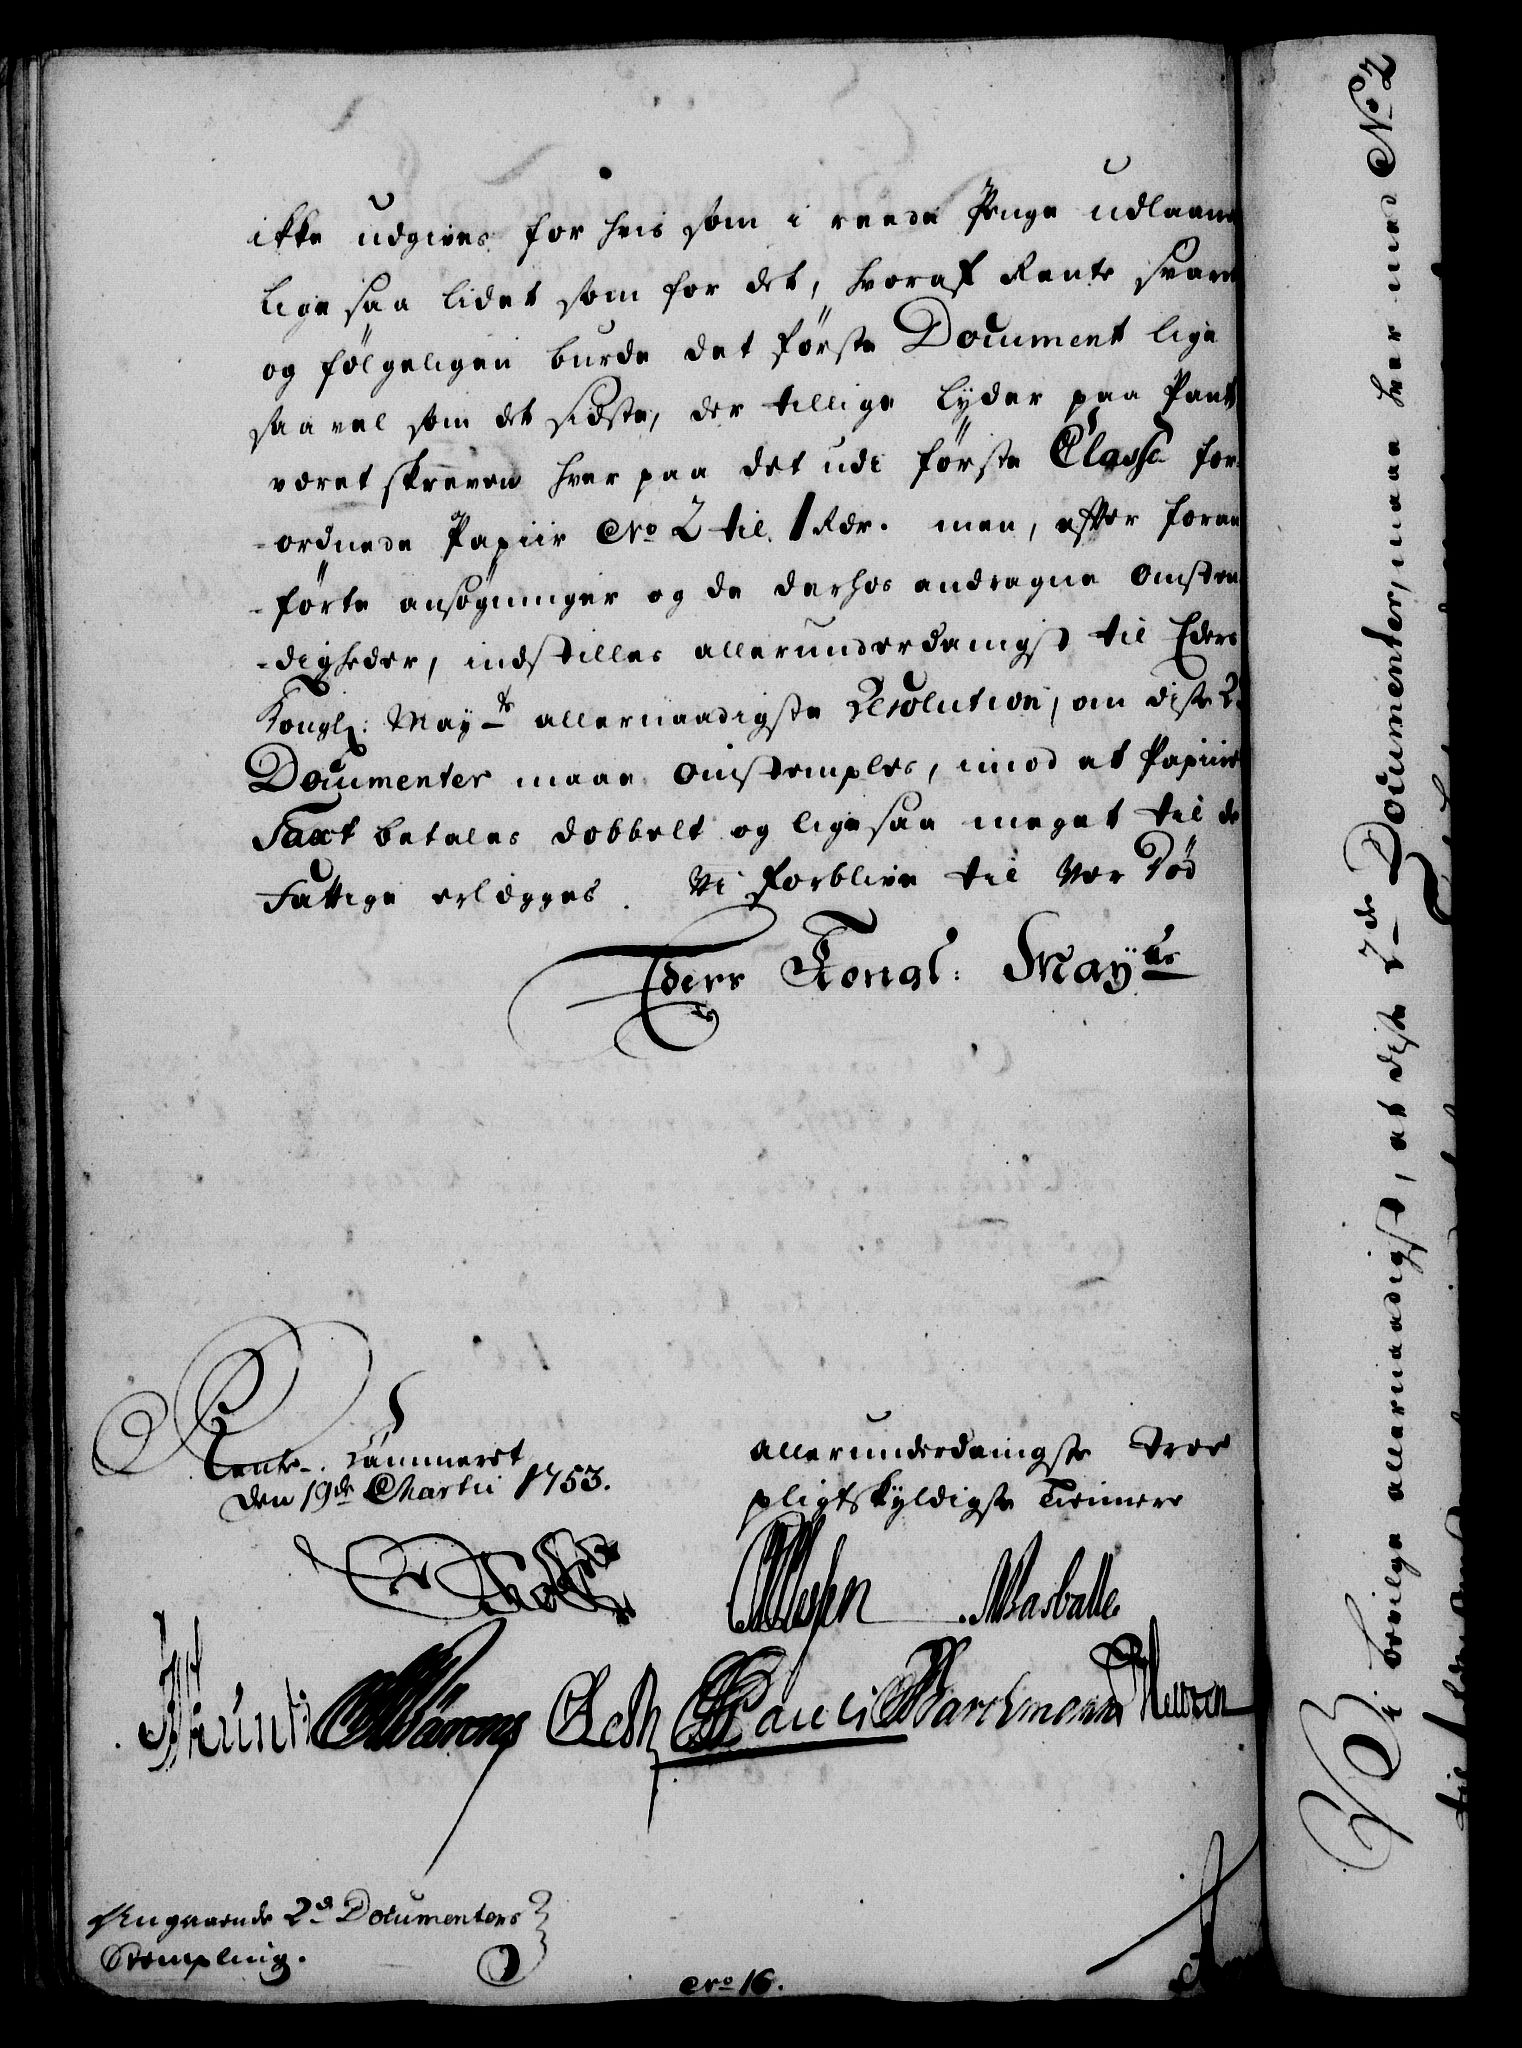 ikke udgives for hvis som i reede Penge udlaane
lige saa lidet som for det, hvoraf Rente svare
og følgeligen burde det første Document lige
saavel som det sidste, der tillige lÿder paa Pant
været skreven hver paa det udi første Classe for-
-ordnede Papiir No 2 til 1 Rdr. men, efter foran
-førte ansøgninger og de derhos andragne Omsten
-digheder, indstilles allerunderdanigst til Eders
Kongl: Mayts allernaadigste Resolution, om disse 2de
Documenter maae omstemples, imod at Papiirs
Taxt betales dobbelt og ligesaa meget til de
Fattige erlægges. Vi forblive til vor Død
Eders Kongl: Mayts
Rente-Cammeret
den 19de Martii 1753.
allerunderdanigste troe
pligtskyldigste Tienere
Wasballe
Pauli Barchmann
Angaaende 2de Documenters
Stempling.
No 16.
Vi bevilge allernaadigst, at disse 2de Documenter, maae hver med No 2